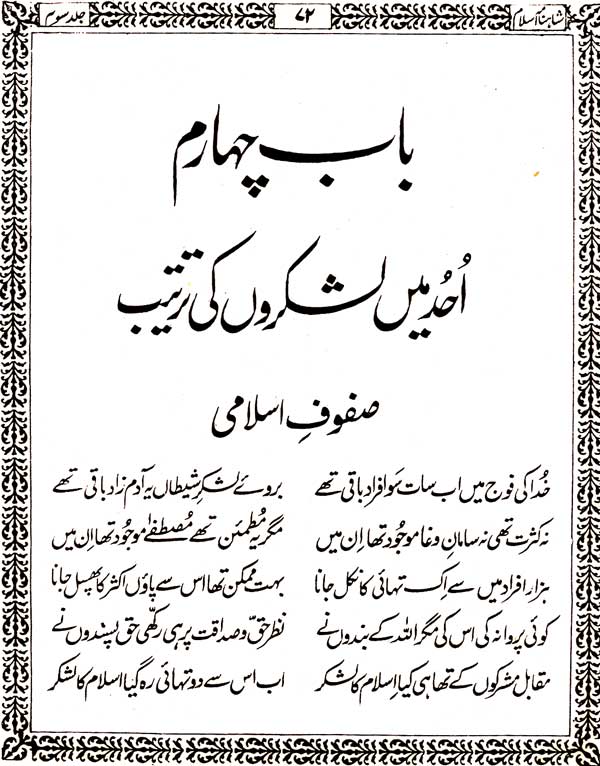 شاہنامہ اسلام ۷۲ جلد سوم
باب چہارم
اُحُد میں لشکروں کی ترتیب
صفوفِ اسلامی
خُدا کی فوج میں اب سات سَو افراد باقی تھے بروئے لشکرِ شیطاں یہ آدم زاد باقی تھے
نہ کثرت تھی نہ سامانِ وغا موجُود تھا اِن میں مگر یہ مُطمئن تھے مُصطفےٰؐ موجُود تھا اِن میں
ہزار افراد میں سے اِک تہائی کا نکل جانا بہت ممکن تھا اس سے پاؤں اکثر کا پھسل جانا
کوئی پروا نہ کی اس کی مگر اللہ کے بندوں نے نظر حقّ و صداقت پر ہی رکھی حق پسندوں نے
مقابل مشرکوں کے تھا ہی کیا اِسلام کا لشکر اب اس سے دو تہائی رہ گیا اسلام کا لشکر